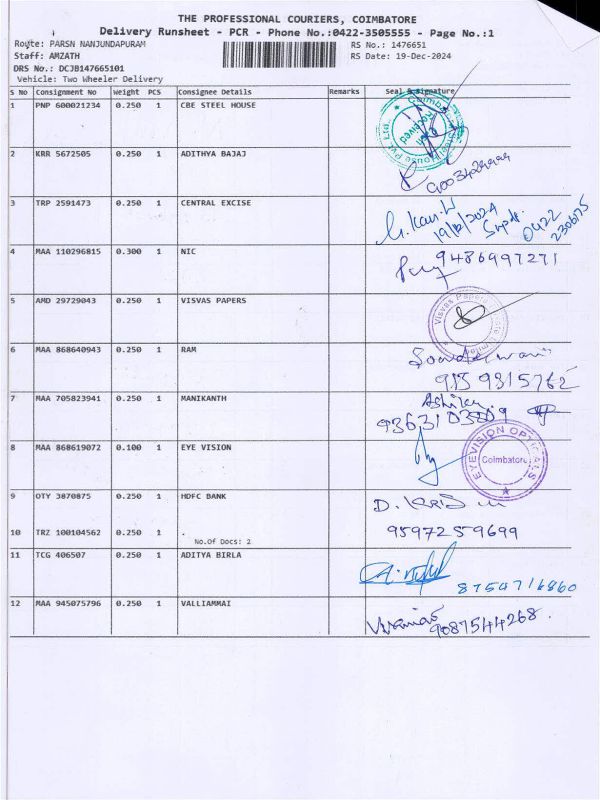 THE PROFESSIONAL COURIERS, COIMBATORE
Delivery Runsheet - PCR - Phone No.:0422-3505555 - Page No.:1
Route: PARSN NANJUNDAPURAM RS No.: 1476651
Staff: AMZATH RS Date: 19-Dec-2024
DRS No.: DCJB147665101
Vehicle: Two Wheeler Delivery
S No Consignment No Weight PCS Consignee Details Remarks Seal & Signature
1 PNP 600021234 0.250 1 CBE STEEL HOUSE
2 KRR 5672505 0.250 1 ADITHYA BAJAJ
3 TRP 2591473 0.250 1 CENTRAL EXCISE
19/12/2024
Supdt.
0422
2306175
4 MAA 110296815 0.300 1 NIC
9486997271
5 AMD 29729043 0.250 1 VISVAS PAPERS
Visvas Papers
6 MAA 868640943 0.250 1 RAM
7 MAA 705823941 0.250 1 MANIKANTH
8 MAA 868619072 0.100 1 EYE VISION
EYEVISION OPTICALS
Coimbatore
9 OTY 3870875 0.250 1 HDFC BANK
10 TRZ 100104562 0.250 1 .
No.Of Docs: 2
9597259699
11 TCG 406507 0.250 1 ADITYA BIRLA
12 MAA 945075796 0.250 1 VALLIAMMAI
9087544268.